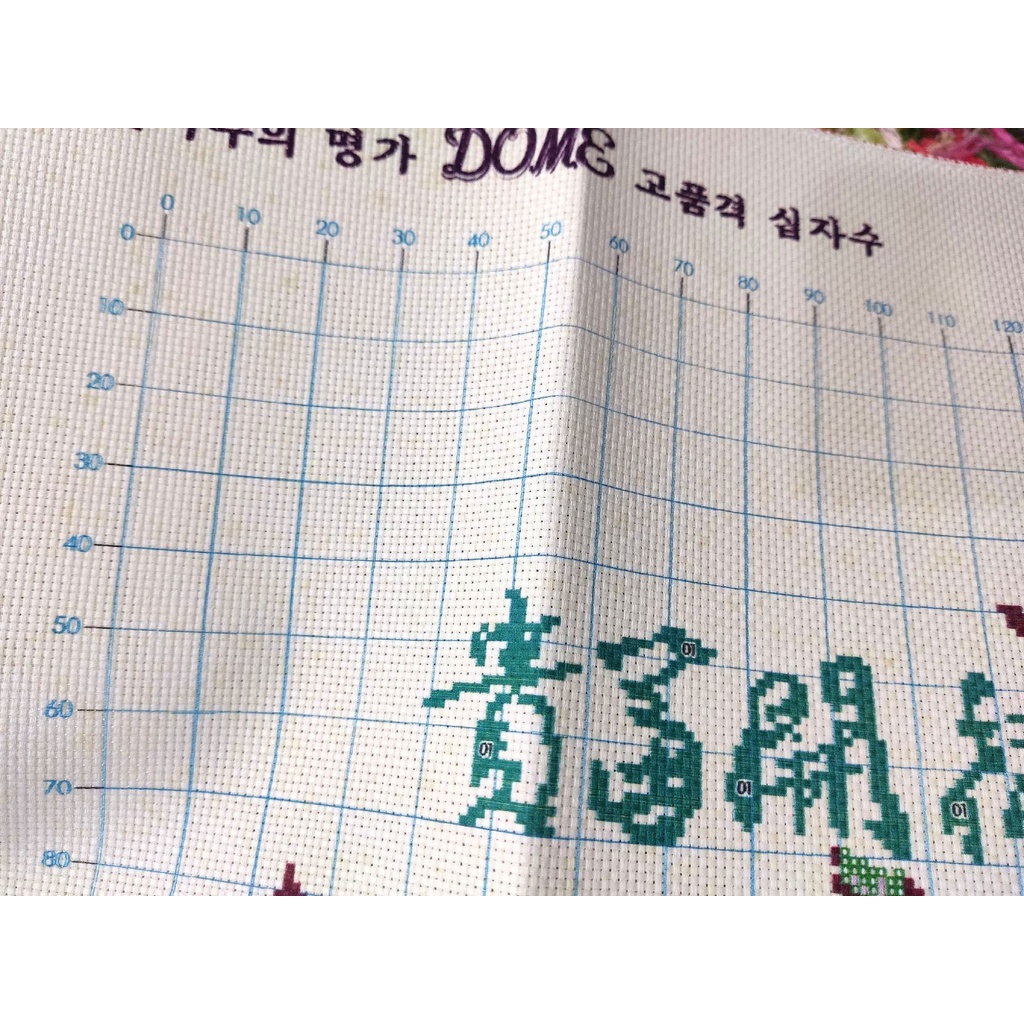 의 명가 DOME 고품격 십자수
0 10 20 30 40 50 60 70 80 90 100 110 120
0
10
20
30
40
50
60
70
80
貴富開
01 01 01 01